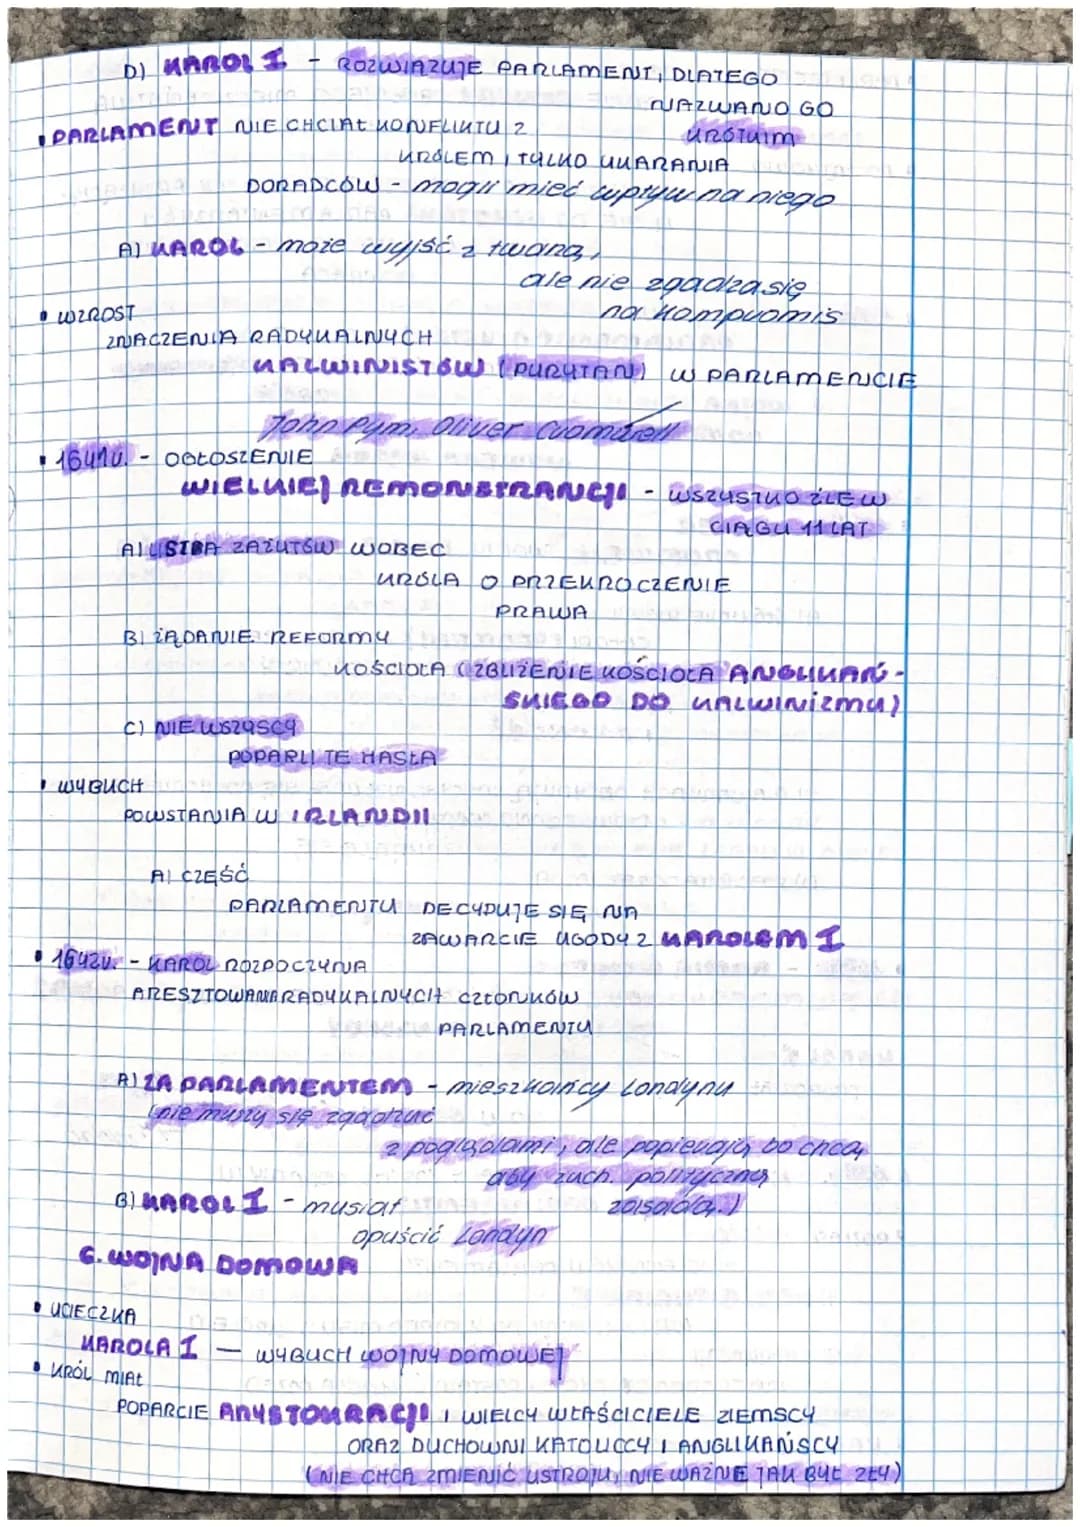 D) KAROL I - ROZWIĄZUJE PARLAMENT, DLATEGO
NAZWANO GO
KRÓTKIM
• PARLAMENT NIE CHCIAŁ KONFLIKTU Z
KRÓLEM, TYLKO UKARANIA
DORADCÓW - mogli mieć wpływ na niego
A) KAROL - może wyjść z twarzą,
ale nie zgadza się
na kompromis
• WZROST
ZNACZENIA RADYKALNYCH
KALWINISTÓW (PURYTAN) W PARLAMENCIE
John Pym, Oliver Cromwell
• 1641r. - OGŁOSZENIE
WIELKIEJ REMONSTRANCJI - WSZYSTKO ŹLE W
CIĄGU 11 LAT
A) LISTA ZARZUTÓW WOBEC
KRÓLA O PRZEKROCZENIE
PRAWA
B) ŻĄDANIE REFORMY
KOŚCIOŁA (ZBLIŻENIE KOŚCIOŁA ANGLIKAŃ-
SKIEGO DO KALWINIZMU)
C) NIE WSZYSCY
POPARLI TE HASŁA
• WYBUCH
POWSTANIA W IRLANDII
A) CZĘŚĆ
PARLAMENTU DECYDUJE SIĘ NA
ZAWARCIE UGODY Z KAROLEM I
• 1642r. - KAROL ROZPOCZYNA
ARESZTOWANIA RADYKALNYCH CZŁONKÓW
PARLAMENTU
A) ZA PARLAMENTEM - mieszkańcy Londynu
(nie muszą się zgadzać
z poglądami, ale popierają, bo chcą,
aby zach. polityczną
zasadą.)
B) KAROL I - musiał
opuścić Londyn
6. WOJNA DOMOWA
• UCIECZKA
KAROLA I — WYBUCH WOJNY DOMOWEJ
• KRÓL MIAŁ
POPARCIE ARYSTOKRACJI I WIELCY WŁAŚCICIELE ZIEMSCY
ORAZ DUCHOWNI KATOLICCY I ANGLIKAŃSCY
(NIE CHCĄ ZMIENIĆ USTROJU, NIE WAŻNE JAK BYŁ ZŁY)